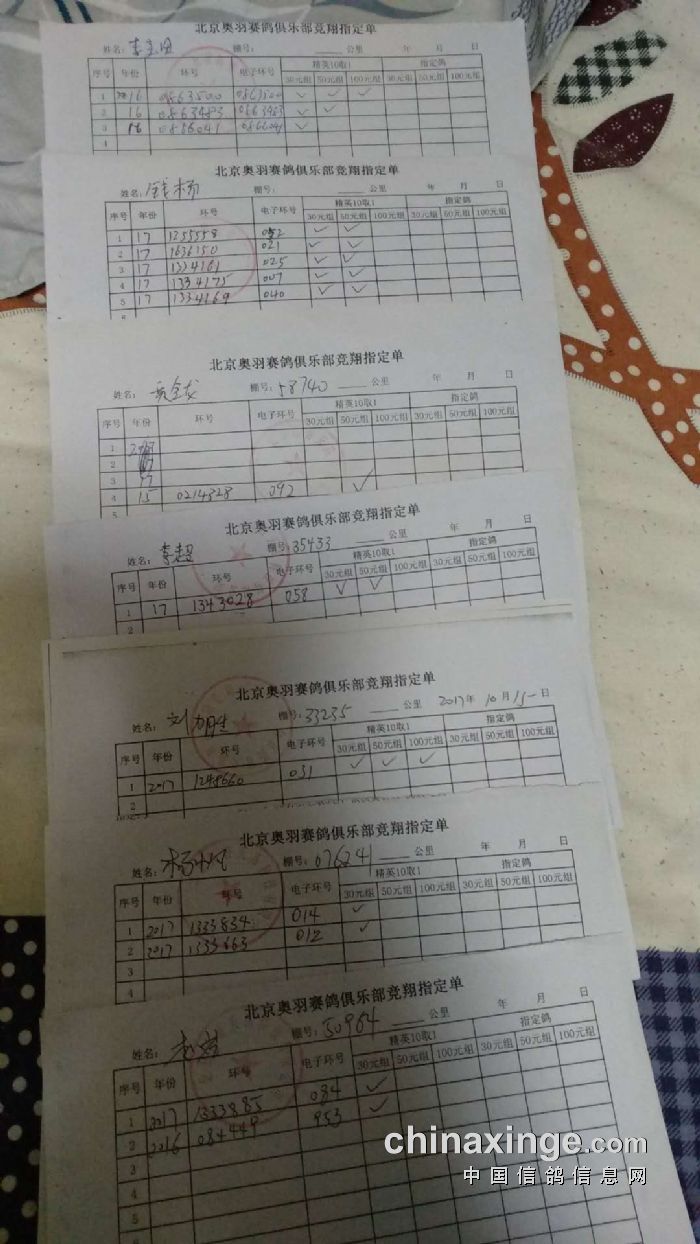 北京奥羽赛鸽俱乐部竞翔指定单
姓名: 棚号: 公里 年 月 日
序号 年份 环号 电子环号 精英10取1 指定鸽
30元组 50元组 100元组 30元组 50元组 100元组
1 2016 0863500 0863500 ✓ ✓ ✓
2 16 0863483 0863483 ✓ ✓
3 16 0886041 0886041
4
北京奥羽赛鸽俱乐部竞翔指定单
姓名: 棚号: 公里 年 月 日
序号 年份 环号 电子环号 精英10取1 指定鸽
30元组 50元组 100元组 30元组 50元组 100元组
1 17 1255558 ✓ ✓
2 17 1636150 021 ✓ ✓
3 17 1334161 025 ✓ ✓
4 17 1334175 007 ✓ ✓
5 17 1334169 040 ✓ ✓
北京奥羽赛鸽俱乐部竞翔指定单
姓名: 棚号: 58740 公里 年 月 日
序号 年份 环号 电子环号 精英10取1 指定鸽
30元组 50元组 100元组 30元组 50元组 100元组
1
2
3 17
4 15 0214328 092 ✓
5
北京奥羽赛鸽俱乐部竞翔指定单
姓名: 李超 棚号: 35433 公里 年 月 日
序号 年份 环号 电子环号 精英10取1 指定鸽
30元组 50元组 100元组 30元组 50元组 100元组
1 17 1343028 058 ✓ ✓
2
北京奥羽赛鸽俱乐部竞翔指定单
姓名: 刘 棚号: 33235 公里 2017年 10月 15日
序号 年份 环号 电子环号 精英10取1 指定鸽
30元组 50元组 100元组 30元组 50元组 100元组
1 2017 1248660 031 ✓ ✓ ✓
2
北京奥羽赛鸽俱乐部竞翔指定单
姓名: 杨 棚号: 07624 公里 年 月 日
序号 年份 环号 电子环号 精英10取1 指定鸽
30元组 50元组 100元组 30元组 50元组 100元组
1 2017 1333834 014 ✓
2 2017 1333663 012 ✓
3
4
北京奥羽赛鸽俱乐部竞翔指定单
姓名: 棚号: 50964 公里 年 月 日
序号 年份 环号 电子环号 精英10取1 指定鸽
30元组 50元组 100元组 30元组 50元组 100元组
1 2017 1333885 084 ✓
2 2016 084449 953 ✓
3
4
5
6
chinaxinge.com
中国信鸽信息网